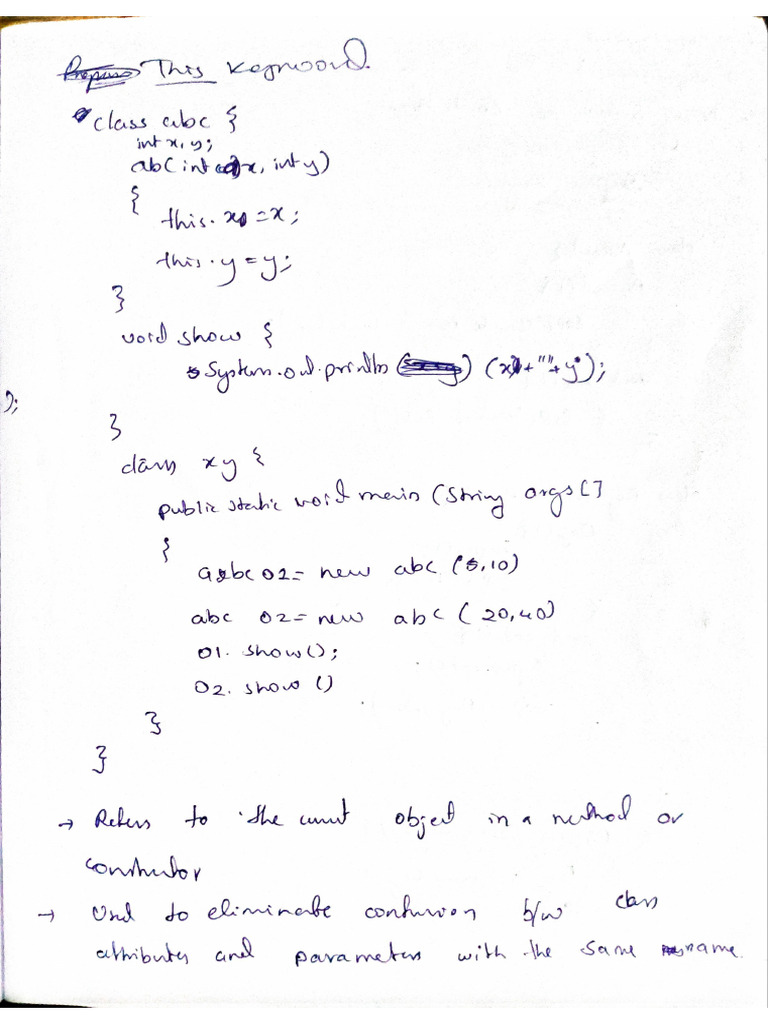 This Keyword.
class abc {
int x, y;
abc(int x, int y)
{
this.x = x;
this.y = y;
}
void show {
System.out.println (x + "" + y);
);
}
class xy {
public static void main (String args[]
{
abc 01 = new abc (5,10)
abc 02 = new abc ( 20,40)
01. show();
02. show ()
}
}
→ Refers to the current object in a method or
constructor
→ Used to eliminate confusion b/w class
attributes and parameters with the same name.